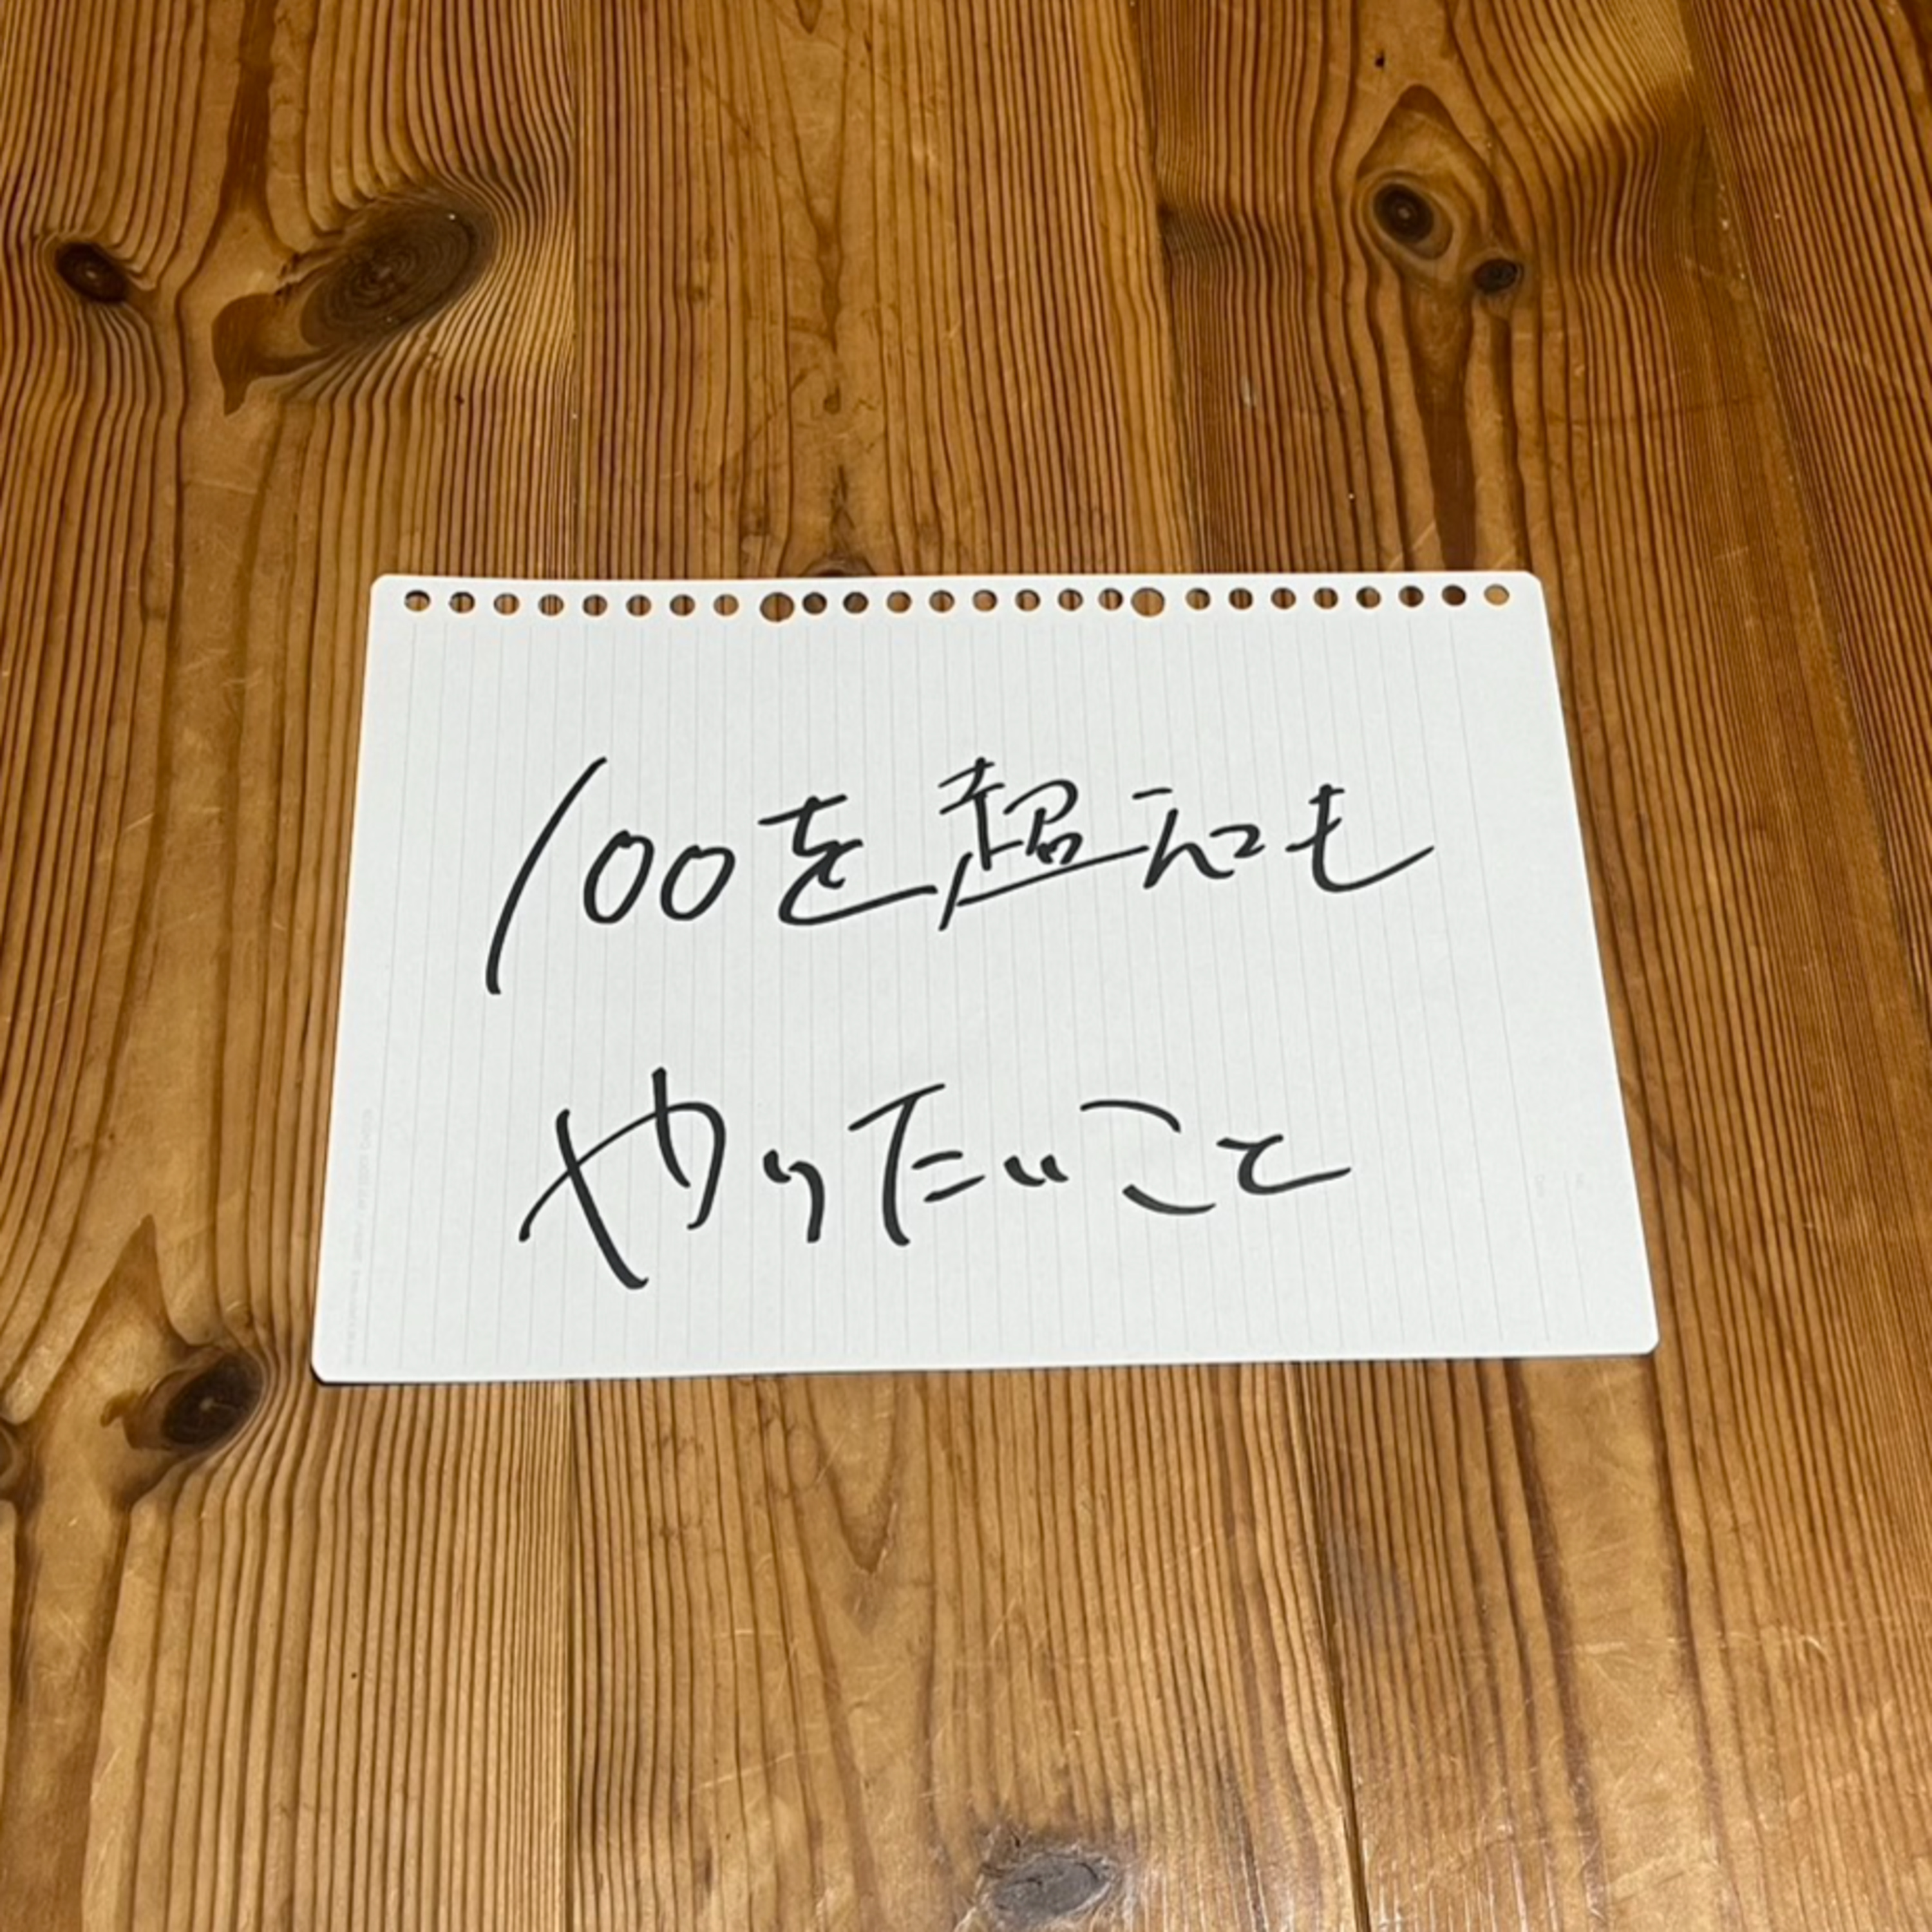 100を超えても
やりたいこと